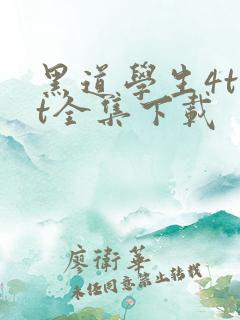 黑道學生4t
t全集下載
廖衛華
未經同意禁止轉載